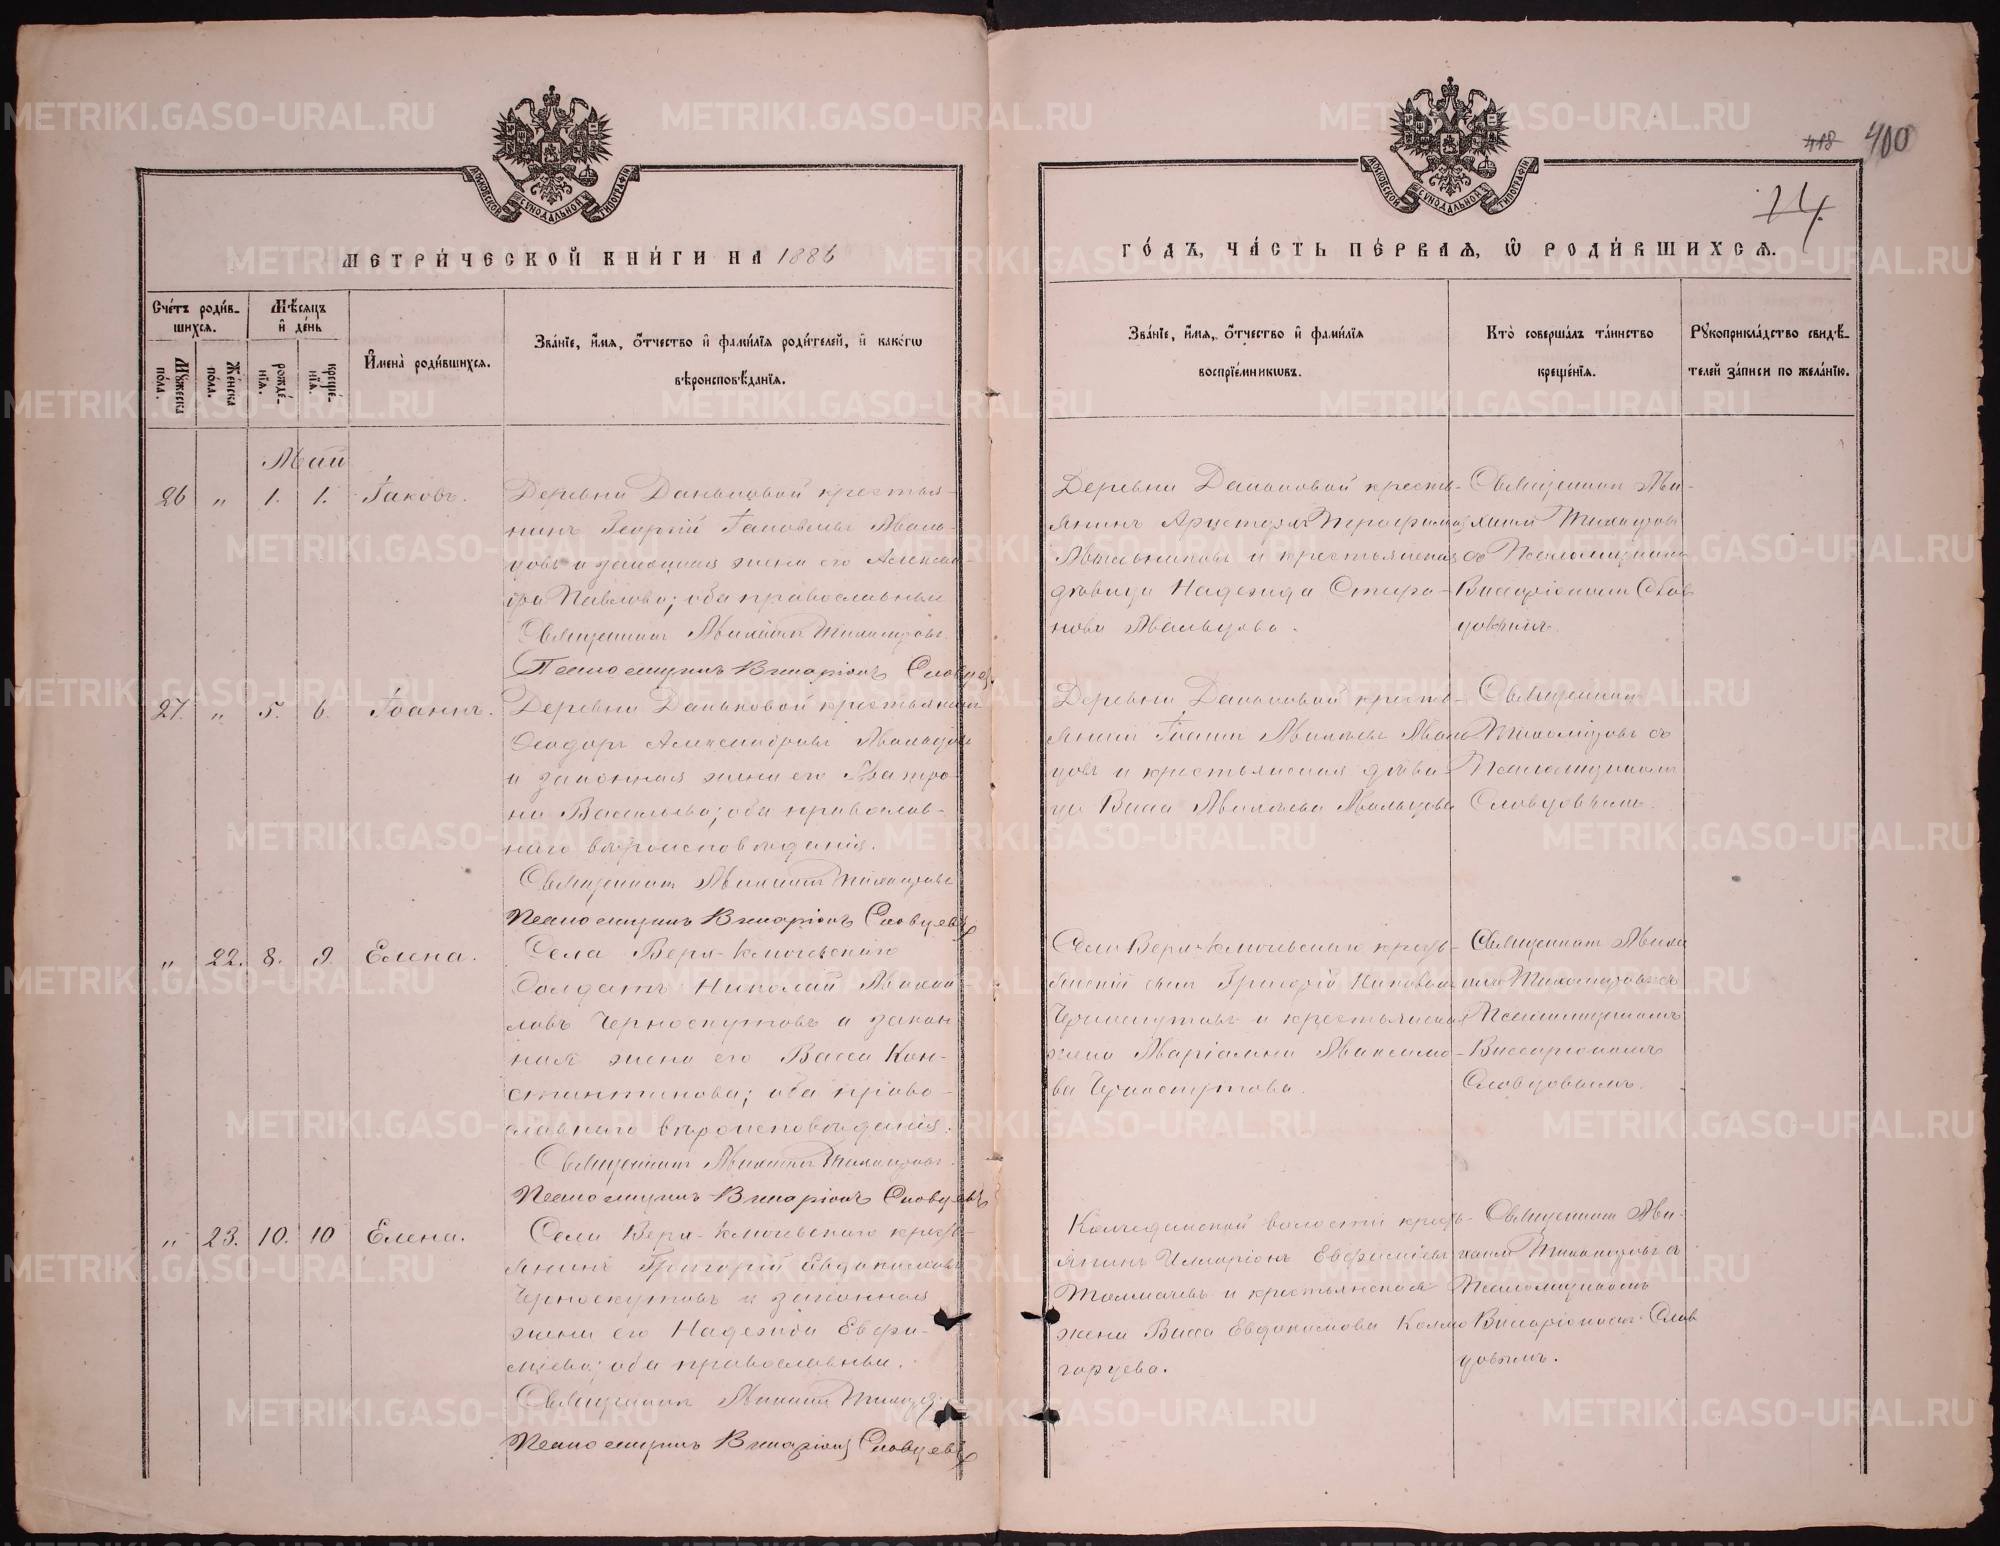 418 400
24.
МОСКОВСКОЙ СѴНОДАЛЬНОЙ ТИПОГРАФІИ
МЕТРИ́ЧЕСКОЙ КНИ́ГИ НА 1886
Сче́тъ роди́в-
шихся.
Мѣ́сяцъ
и҆ де́нь
Му́жеска
по́ла.
Же́нска
по́ла.
рожде́-
нїя.
креще́-
нїя.
И҆мена̀ роди́вшихся.
Зва́нїе, и҆́мя, ѻ҆́тчество и҆ фами́лїя роди́телей, и҆ како́гѡ
вѣроисповѣ́данїя.
Май
26 „ 1. 1. Іаковъ.
Деревни Даньковой крестья-
нинъ Георгій Іаковлевъ
и законная жена его Алексан-
дра Павлова; оба православные
Священникъ Тихомировъ
Псаломщикъ Виссаріонъ Словцовъ
27. „ 5. 6. Іоаннъ.
Деревни Даньковой крестьянинъ
Ѳеодоръ Александровъ
и законная жена его Матро-
на Васильева; оба православ-
наго вѣроисповѣданія.
Священникъ Тихомировъ
Псаломщикъ Виссаріонъ Словцевъ
„ 22. 8. 9. Елена.
Села Верх-Ключевскаго
Солдатъ Николай
Черноскутовъ и закон-
ная жена его Васса Кон-
стантинова; оба право-
славнаго вѣроисповѣданія.
Священникъ Тихомировъ
Псаломщикъ Виссаріонъ Словцевъ
„ 23. 10. 10 Елена.
Села Верх-Ключевскаго кресть-
янинъ Григорій Евдокимовъ
Черноскутовъ и законная
жена его Надежда Евфи-
міева; оба православные.
Священникъ
Псаломщикъ Виссаріонъ Словцевъ
МОСКОВСКОЙ СѴНОДАЛЬНОЙ ТИПОГРАФІИ
ГО́ДЪ, ЧА́СТЬ ПЕ́РВАЯ, Ѡ҆ РОДИ́ВШИХСЯ.
Зва́нїе, и҆́мя, ѻ҆́тчество и҆ фами́лїя
воспрїе́мникѡвъ.
Кто̀ соверша́лъ та́инство
креще́нїя.
Рꙋкоприкла́дство свидѣ́-
телей за́писи по жела́нїю.
Деревни Даньковой кресть-
янинъ
и крестьянская
дѣвица Надежда Спиро-
нова
Священникъ
Тихомировъ
съ Псаломщикомъ
Виссаріономъ Слов-
цовымъ.
Деревни Даньковой кресть-
янинъ Іоаннъ
и крестьянская дѣви-
ца Васса
Священникъ
Тихомировъ съ
Псаломщикомъ
Словцовымъ.
Села Верх-Ключевскаго кресть-
янскій сынъ Григорій
Черноскутовъ и крестьянская
жена Маріамна Максимо-
ва Черноскутова.
Священникъ
Тихомировъ съ
Псаломщикомъ
Виссаріономъ
Словцовымъ.
Колчеданской волости кресть-
янинъ Илларіонъ Евфиміевъ
Толмачевъ и крестьянская
жена Васса Евдокимова Колмо-
горцева.
Священникъ
Тихомировъ съ
Псаломщикомъ
Виссаріономъ Слов-
цовымъ.
METRIKI.GASO-URAL.RU